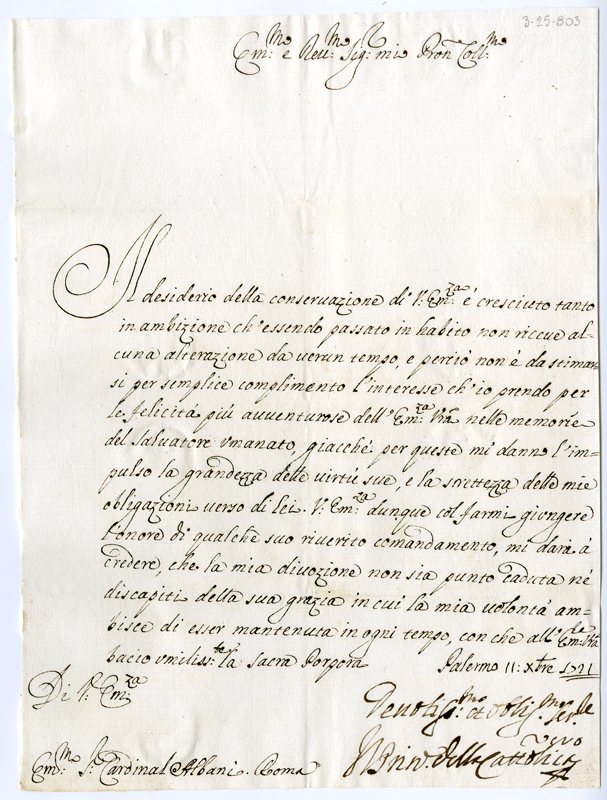 3-25-803
Em:mo e Reu:mo Sig:r mio Pron Coll:mo
Il desiderio della conseruazione di V: Em:za é cresciuto tanto
in ambizione ch'essendo passato in habito non riceue al-
cuna alterazione da uerun tempo, e perció non é da stimar-
si per semplice complimento l'interesse ch'io prendo per
le felicitá piú auuenturose dell'Em:za Vra nelle memorie
del Saluatore vmanato, giacché per queste mi danno l'im-
pulso la grandezza delle uirtú sue, e la strettezza delle mie
obligazioni uerso di lei. V: Em:za dunque col farmi giungere
l'onore di qualche suo riuerito comandamento, mi dará á
credere, che la mia diuozione non sia punto caduta né
discapiti della sua grazia in cui la mia uolontá am-
bisce di esser mantenuta in ogni tempo, con che all'Em:za Vra
bacio vmiliss:te la Sacra Porpora Palermo 11: Xbre 1721
Di V: Em:za
Deuotiss:mo et oblig:mo Ser:le
vero
Il Prin. della Cattolica
Em:mo S:r Cardinal Albani. Roma